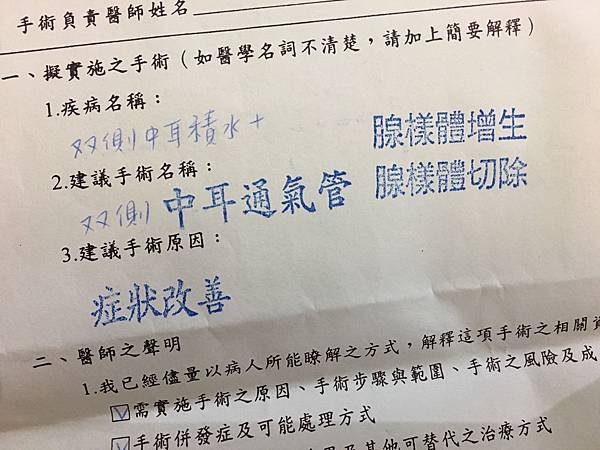 手術負責醫師姓名
一、擬實施之手術（如醫學名詞不清楚，請加上簡要解釋）
1.疾病名稱：
双側中耳積水+ 腺樣體增生
2.建議手術名稱：
双側 中耳通氣管 腺樣體切除
3.建議手術原因：
症狀改善
二、醫師之聲明
1.我已經儘量以病人所能瞭解之方式，解釋這項手術之相關資
☑需實施手術之原因、手術步驟與範圍、手術之風險及成
☑手術併發症及可能處理方式
及其他可替代之治療方式